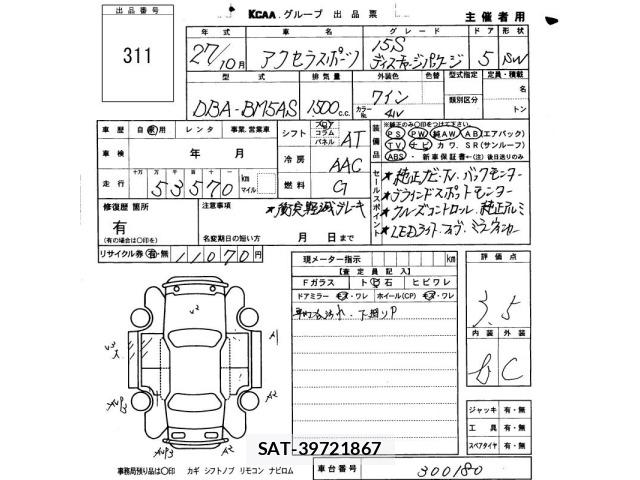 出品番号
311
KCAA.グループ 出品票
主催者用
年式 車名 グレード ドア 形状
27/10月 アクセラスポーツ 15S ディスチャージパケージ 5 SW
型式 排気量 外装色 色替 型式指定 定員・積載
DBA-BM5AS 1500 c.c. ワイン 名
カラーNo. 41V 類別区分 トン
車歴 自家用 レンタ 事業.営業車
シフト フロア コラム パネル AT
装備品
※純正のみ○印をつけて下さい。
PS PW 純AW AB(エアバック)
TV ナビ カワ. SR(サンルーフ)
ABS ・ 新車保証書←(注)後日送りのみ
車検 年 月
冷房 AAC
走行 十万 万 千 百 十 一 53570 km マイル
燃料 G
セールスポイント
★純正ナビ.TV.バックモニター
★ブラインドスポットモニター
★クルーズコントロール.純正アルミ
★LEDライト.フォグ.ミラーウィンカー
修復歴 箇所
有
(有の場合は○印を)
注意事項
★衝突軽減ブレーキ
名変期日の短い方 月 日まで
リサイクル券 有・無 11070円
現メーター指示 km
【査定員記入】
Fガラス ト(ビ)石 ヒビワレ
ドアミラー キズ・ワレ ホイール(CP) キズ・ワレ
下廻りP
評価点
3.5
内装 外装
B C
v2
v3
A1
A2
AUP3
AUP3
A2
ジャッキ 有・無
工具 有・無
スペアタイヤ 有・無
SAT-39721867
事務局預り品は○印 カギ シフトノブ リモコン ナビロム
車台番号 300180